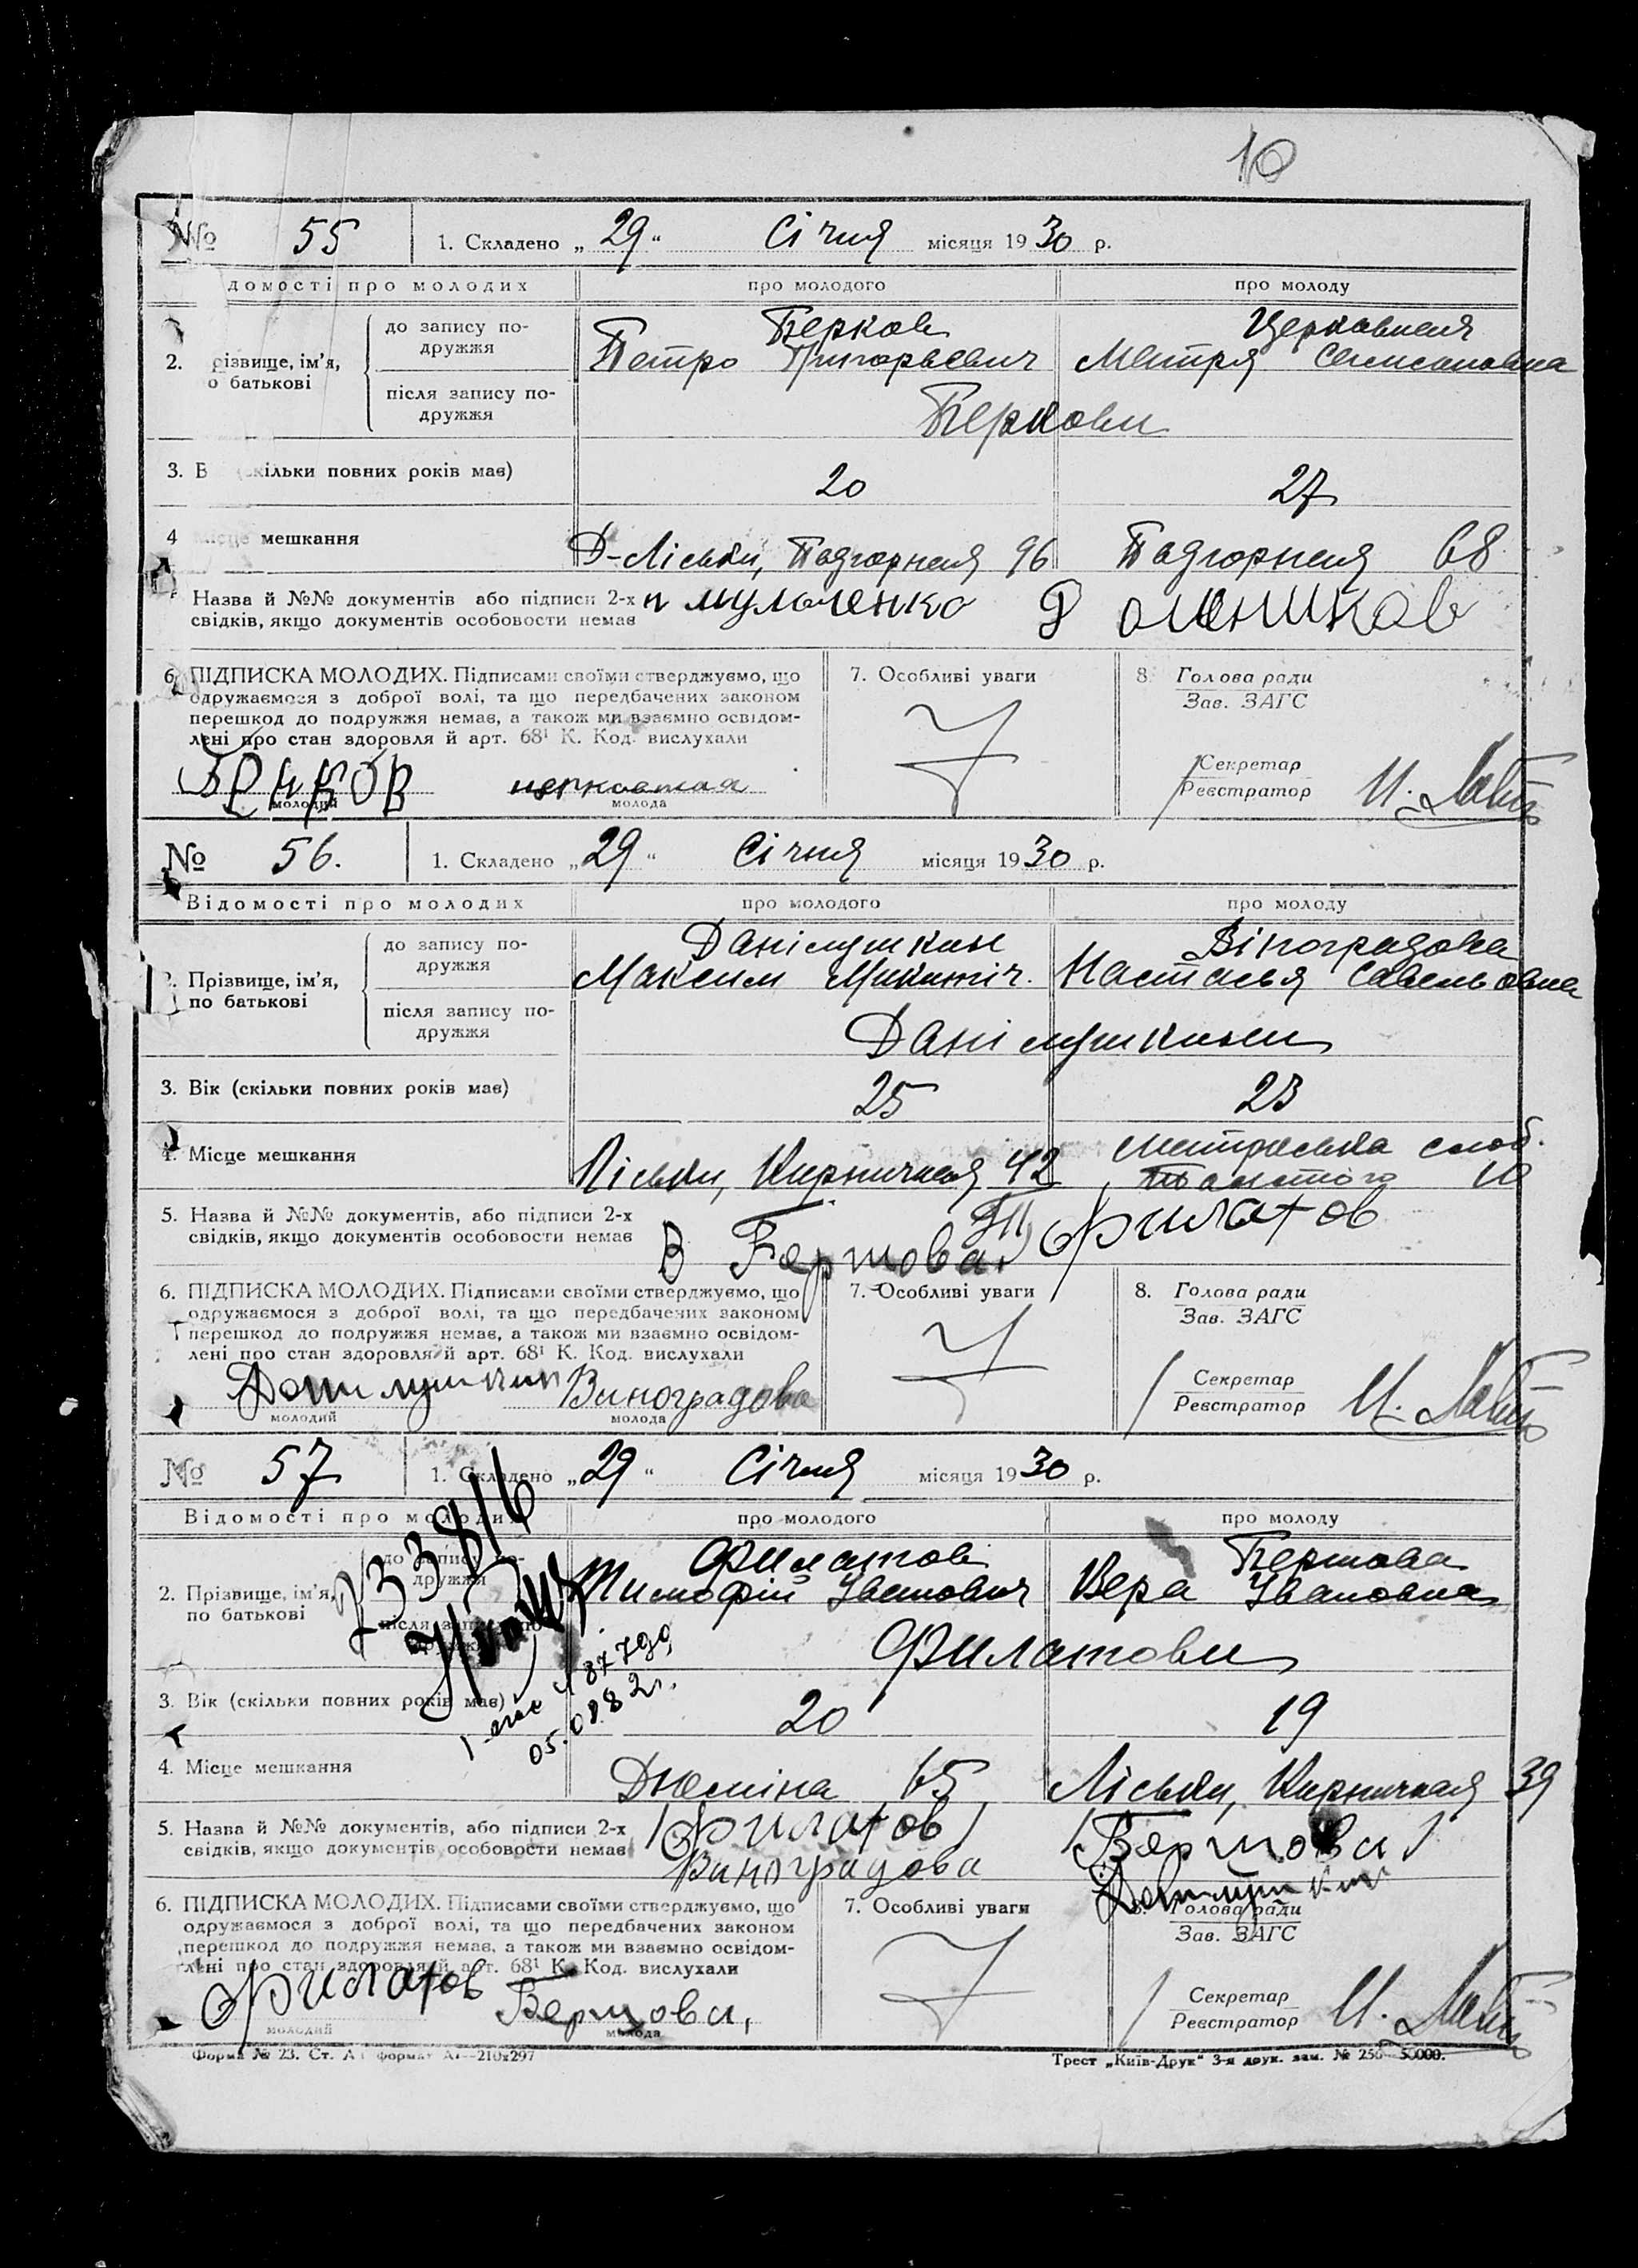 10
№ 55 1. Складено „29“ Січня місяця 1930 р.
домості про молодих про молодого про молоду
до запису по-
дружжя
Берков Церковная
2. різвище, ім'я,
о батькові
Петро Григорьевич Матря
після запису по-
дружжя
Беркови
3. В (скільки повних років має) 20 27
4 місце мешкання Д-Ліськи, Подгорная 96 Подгорная 68
Назва й №№ документів або підписи 2-х
свідків, якщо документів особовости немає
6. ПІДПИСКА МОЛОДИХ. Підписами своїми стверджуємо, що
одружаємося з доброї волі, та що передбачених законом
перешкод до подружжя немає, а також ми взаємно освідом-
лені про стан здоровля й арт. 68¹ К. Код. вислухали
7. Особливі уваги
8. Голова ради
Зав. ЗАГС
Секретар
Реєстратор
церковная
молодий молода
№ 56. 1. Складено „29“ Січня місяця 1930 р.
Відомості про молодих про молодого про молоду
до запису по-
дружжя
Данілушкин Віноградова
2. Прізвище, ім'я,
по батькові
Максим Микитіч. Настасья Савельовна
після запису по-
дружжя
Данілушкини
3. Вік (скільки повних років має) 25 23
4. Місце мешкання Ліськи, Кирпичная 42 слоб.
Толстого 10
5. Назва й №№ документів, або підписи 2-х
свідків, якщо документів особовости немає
В Бертова Филатов
6. ПІДПИСКА МОЛОДИХ. Підписами своїми стверджуємо, що
одружаємося з доброї волі, та що передбачених законом
перешкод до подружжя немає, а також ми взаємно освідом-
лені про стан здоровля й арт. 68¹ К. Код. вислухали
7. Особливі уваги
8. Голова ради
Зав. ЗАГС
Секретар
Реєстратор
Данилушкин Виноградова
молодий молода
№ 57 1. Складено „29“ Січня місяця 1930 р.
Відомості про молодих про молодого про молоду
до запису по-
дружжя
Филатов Бертова
2. Прізвище, ім'я,
по батькові
Тимофій Івановіч Вера Івановна
після запису по-
дружжя
Филатови
05.08.82г.
3. Вік (скільки повних років має) 20 19
4. Місце мешкання Дюміна 65 Ліськи, Кирпичная 39
5. Назва й №№ документів, або підписи 2-х
свідків, якщо документів особовости немає
Филатов Бертова
Виноградова Данилушкин
6. ПІДПИСКА МОЛОДИХ. Підписами своїми стверджуємо, що
одружаємося з доброї волі, та що передбачених законом
перешкод до подружжя немає, а також ми взаємно освідом-
лені про стан здоровля й арт. 68¹ К. Код. вислухали
7. Особливі уваги
8. Голова ради
Зав. ЗАГС
Секретар
Реєстратор
Филатов Бертова,
молодий молода
Форма № 23. Ст. А формат А₄—210х297 Трест „Київ-Друк“ 3-я друк. зам. № 256—50000.